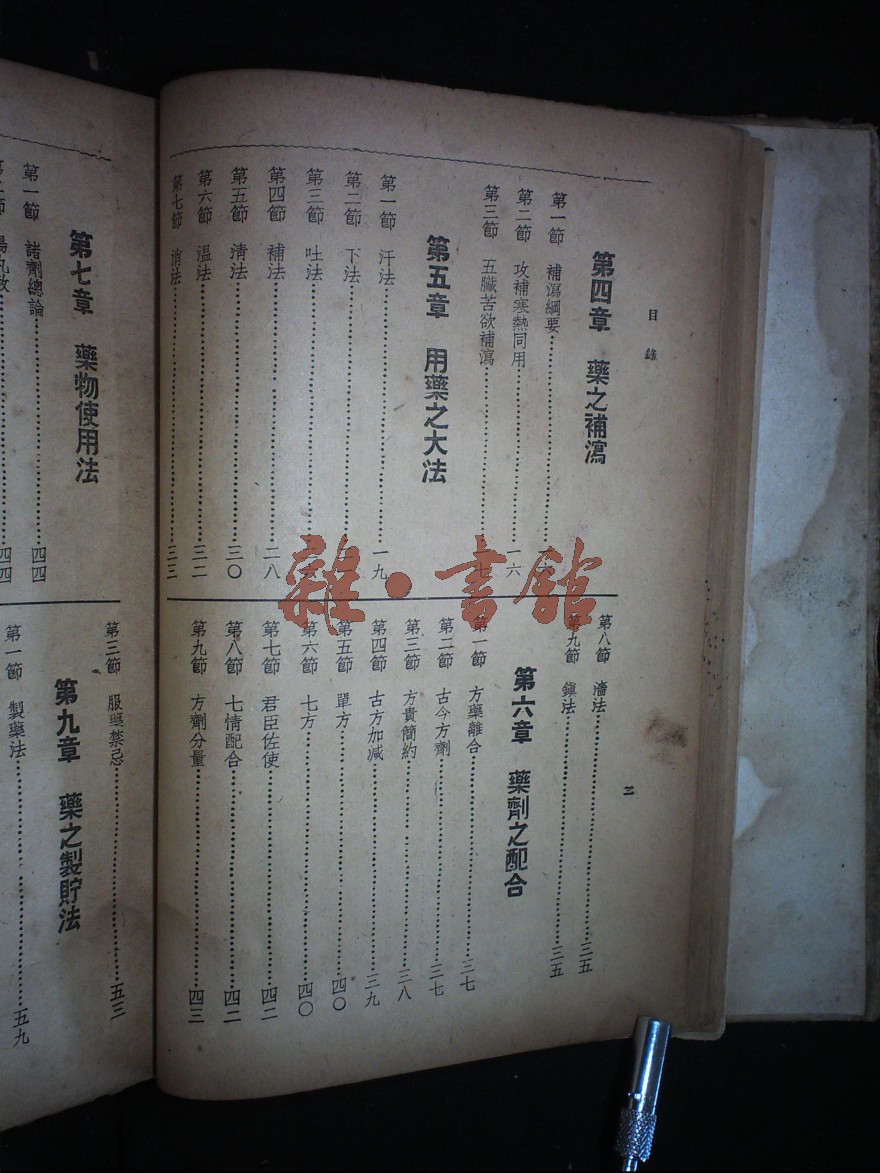 目錄
第四章 藥之補瀉
第一節 補瀉綱要
第二節 攻補寒熱同用 一六
第三節 五臟苦欲補瀉 七
第五章 用藥之大法
第一節 汗法 一九
第二節 下法
第三節 吐法
第四節 補法 二八
第五節 淸法 三〇
第六節 温法 三二
第七節 消法 三三
第八節 濇法 三五
第九節 鎭法 三五
第六章 藥劑之配合
第一節 方藥離合 三七
第二節 古今方劑 三七
第三節 方貴簡約 三八
第四節 古方加减 三九
第五節 單方 四〇
第六節 七方 四〇
第七節 君臣佐使 四二
第八節 七情配合 四二
第九節 方劑分量 四三
三
第七章 藥物使用法
第一節 諸劑總論 四四
四四
第三節 服藥禁忌 五三
第九章 藥之製貯法
第一節 製藥法 五九
雜·書館